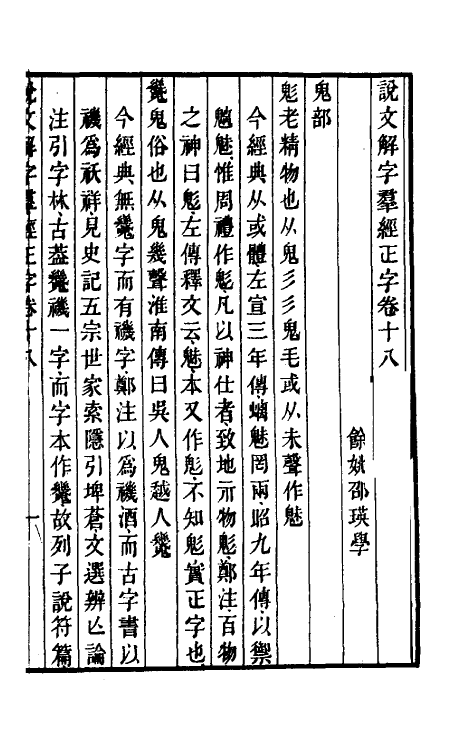 說文解字羣經正字卷十八
餘姚邵瑛學
鬼部
鬽老精物也从鬼彡彡鬼毛或从未聲作魅
今經典从或體左宣三年傳螭魅罔兩昭九年傳以禦
魑魅惟周禮作鬽凡以神仕者致地示物鬽鄭注百物
之神曰鬽左傳釋文云魅本又作鬽不知鬽實正字也
鬾鬼俗也从鬼幾聲淮南傳曰吳人鬼越人
今經典無字而有禨字鄭注以為禨酒而古字書以
禨為祅祥見史記五宗世家索隱引埤蒼文選辨亾論
注引字林古葢禨一字而字本作故列子說符篇
說文解字羣經正字卷十八
一